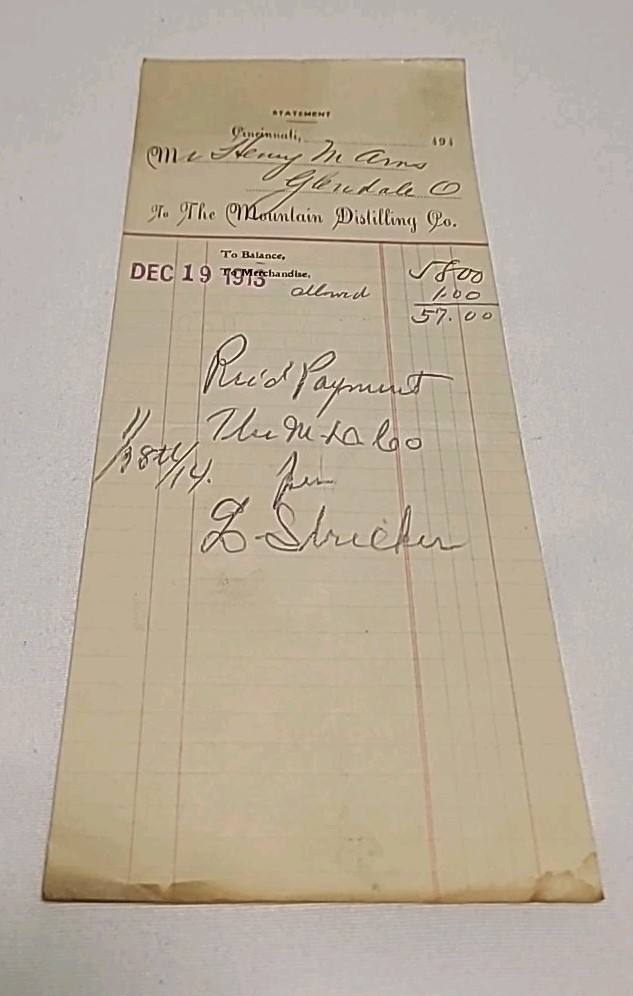 STATEMENT
Cincinnati, 191
Mr Henry M Arns
Glendale O
To The Mountain Distilling Co.
To Balance,
DEC 19 1913 To Merchandise, 58 00
allowed 1.00
57.00
Rec'd Payment
The M D Co
1/8th/14. per
Stricker